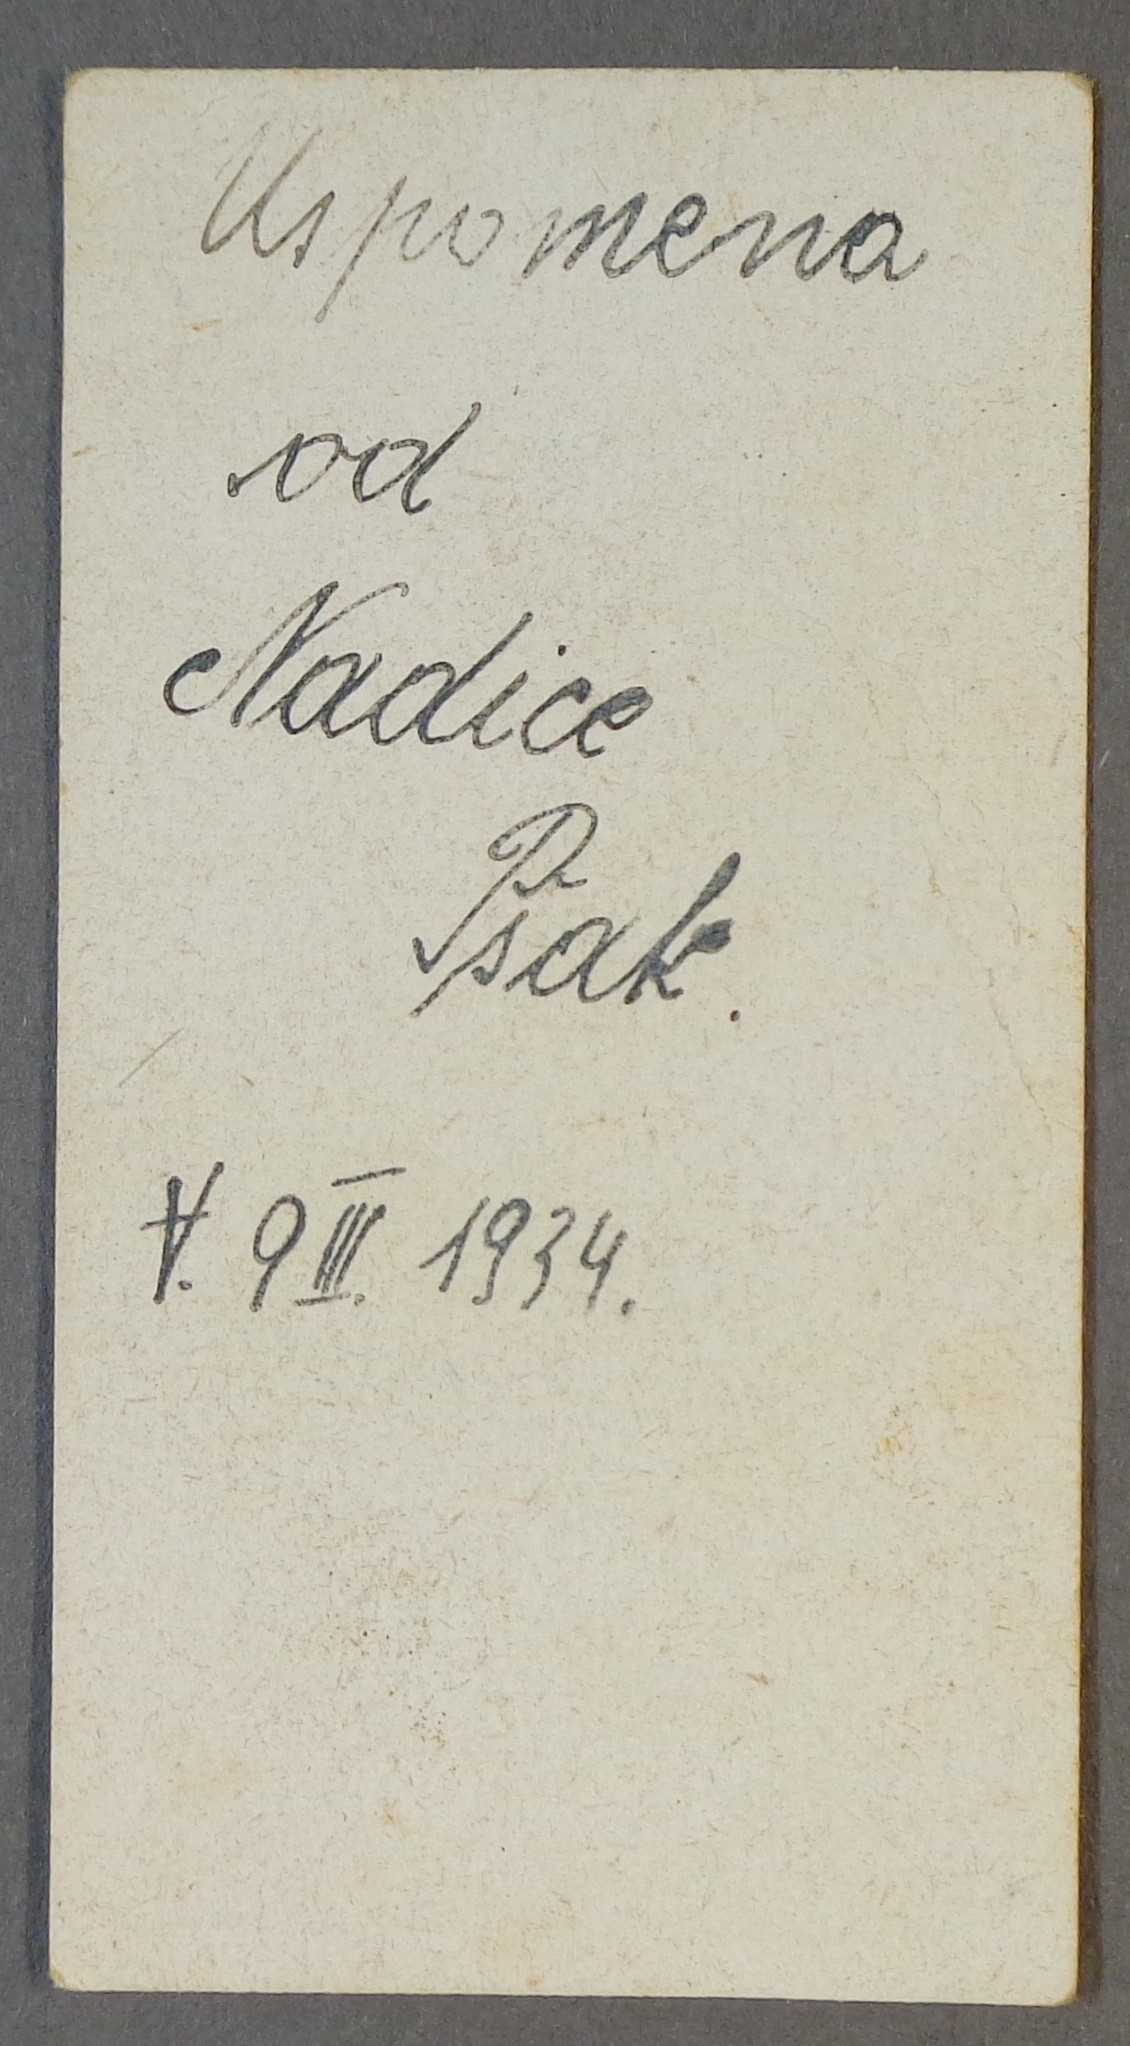 Uspomena
od
Nadice
Pšak.
V. 9 III. 1934.